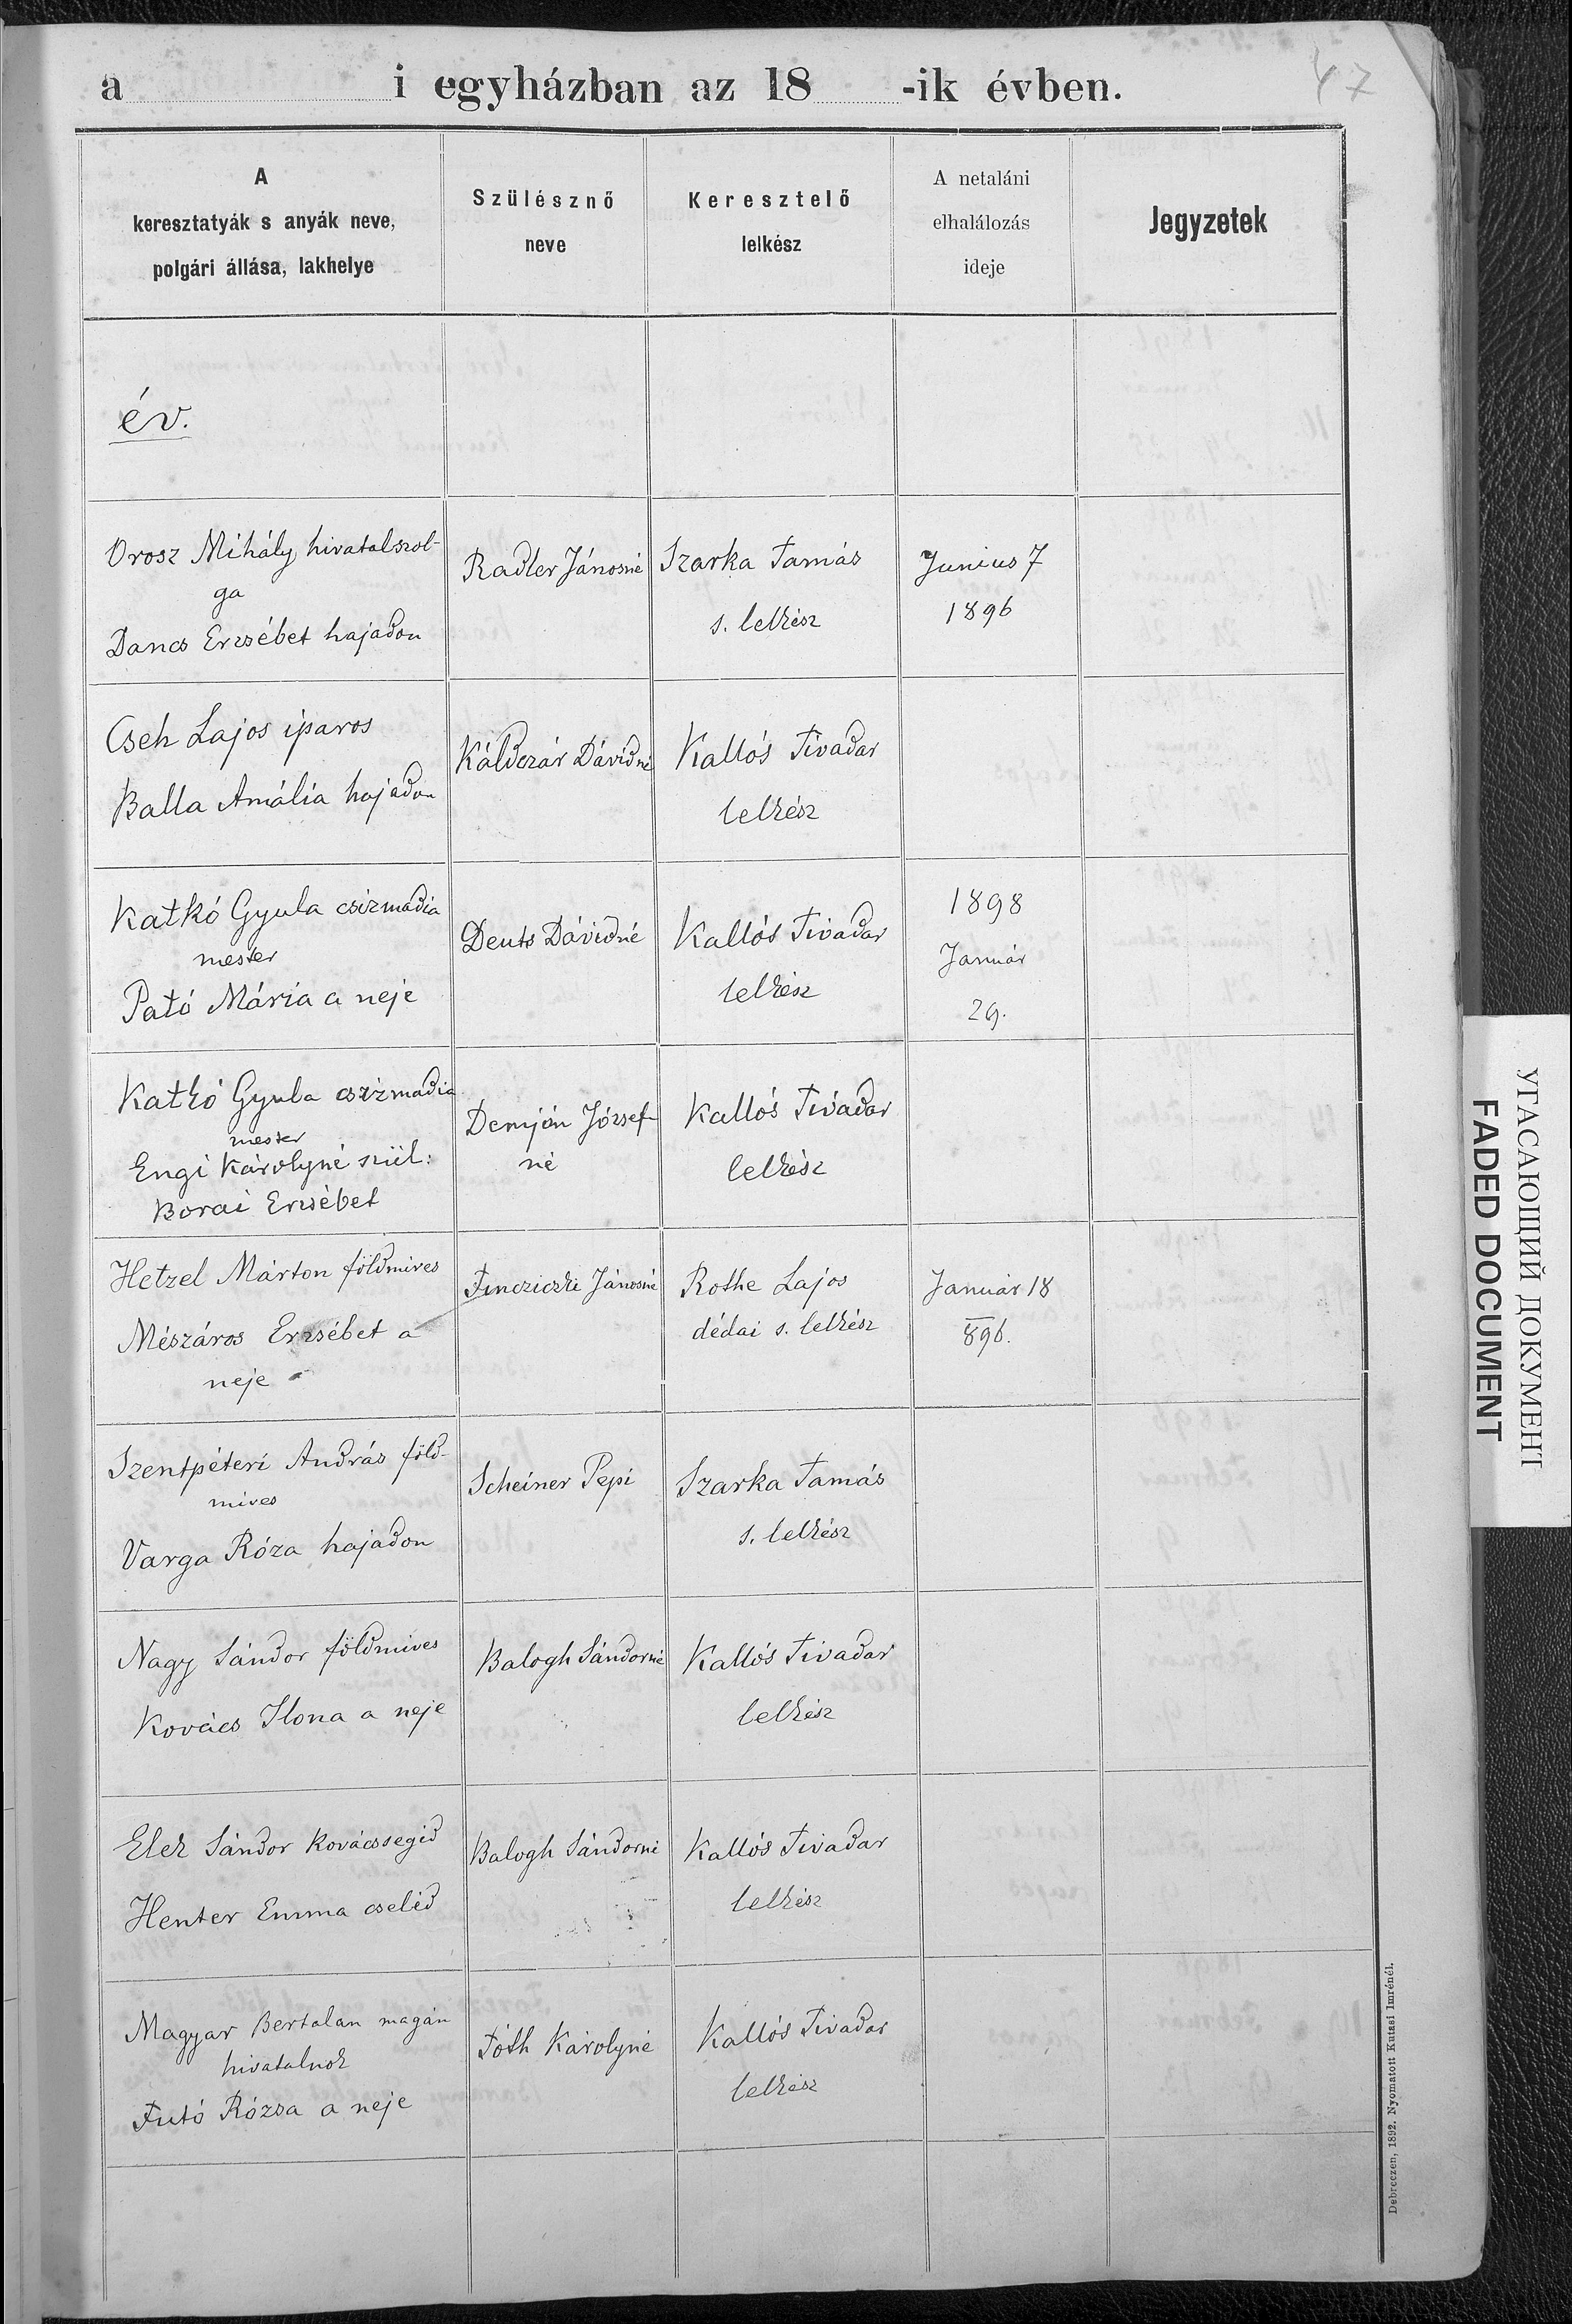 a i egyházban az 18 -ik évben.
47
A
keresztatyák s anyák neve,
polgári állása, lakhelye
Szülésznő
neve
Keresztelő
lelkész
A netaláni
elhalálozás
ideje
Jegyzetek
év.
Orosz Mihály hivatalszol-
ga
Dancs Erzsébet hajadon
Radler Jánosné
Szarka Tamás
s. lelkész
Junius 7
1896
Cseh Lajos iparos
Balla Amália hajadon
Káldezár Dávidné
Kallós Tivadar
lelkész
Katkó Gyula csizmadia
mester
Pató Mária a neje
Deuts Dávidné
Kallós Tivadar
lelkész
1898
Január
29.
Katkó Gyula csizmadia
mester
Engi Károlyné szül:
Borai Erzsébet
Demján József-
né
Kallós Tivadar
lelkész
Hetzel Márton földmives
Mészáros Erzsébet a
neje
Jánosné
Rothe Lajos
dédai s. lelkész
Január 18
896.
Szentpéteri András föld-
mives
Varga Róza hajadon
Scheiner Pepi
Szarka Tamás
s. lelkész
Nagy Sándor földmives
Kovács Ilona a neje
Balogh Sándorné
Kallós Tivadar
lelkész
Elek Sándor kovácssegéd
Henter Emma cseléd
Balogh Sándorné
Kallós Tivadar
lelkész
Magyar Bertalan magán
hivatalnok
Futó Rózsa a neje
Tóth Károlyné
Kallós Tivadar
lelkész
Debreczen, 1892. Nyomatott Kutasi Imrénél.
УГАСАЮЩИЙ ДОКУМЕНТ
FADED DOCUMENT